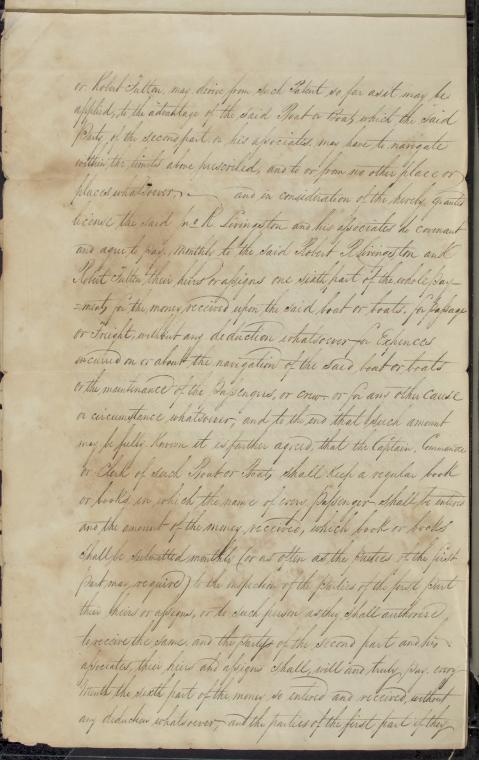 or Robert Fulton, may derive from such Patent so far as it may be
applied, to the advantage of the said Boat or Boats, which the said
Party, of the second part or his associates may have to navigate
within, the limits above prescribed, and to or from no other place or
places whatsoever, and in consideration of the hereby granted
license the said Jno R Livingston and his associates do covenant
and agree to pay, monthly to the said Robert R Livingston and
Robert Fulton, their heirs or assigns one sixth part of the whole pay
=ments, for the money received upon the said boat or boats, for passage
or Freight, without any deduction whatsoever for Expences
incurred on or about the navigation of the said boat or boats
or the maintenance of the Passengers, or crew or for any other cause
or circumstance whatsoever, and to the end that such amount
may be fully known it is further agreed, that the Captain, Commander
or Clerk of such Boat or Boats shall keep a regular book
or books in which the name of every passenger shall be entered
and the amount of the money received, which book or books
shall be submitted monthly (or as often as the parties of the first
part may require) to the inspection of the parties of the first part
their heirs or assigns, or to such person as they shall authorize,
to receive the same and the party of the second part and his
associates, their heirs and assigns shall, will and truly, pay every
Month the sixth part of the money so entered and received, without
any deduction whatsoever, and the parties of the first part if they